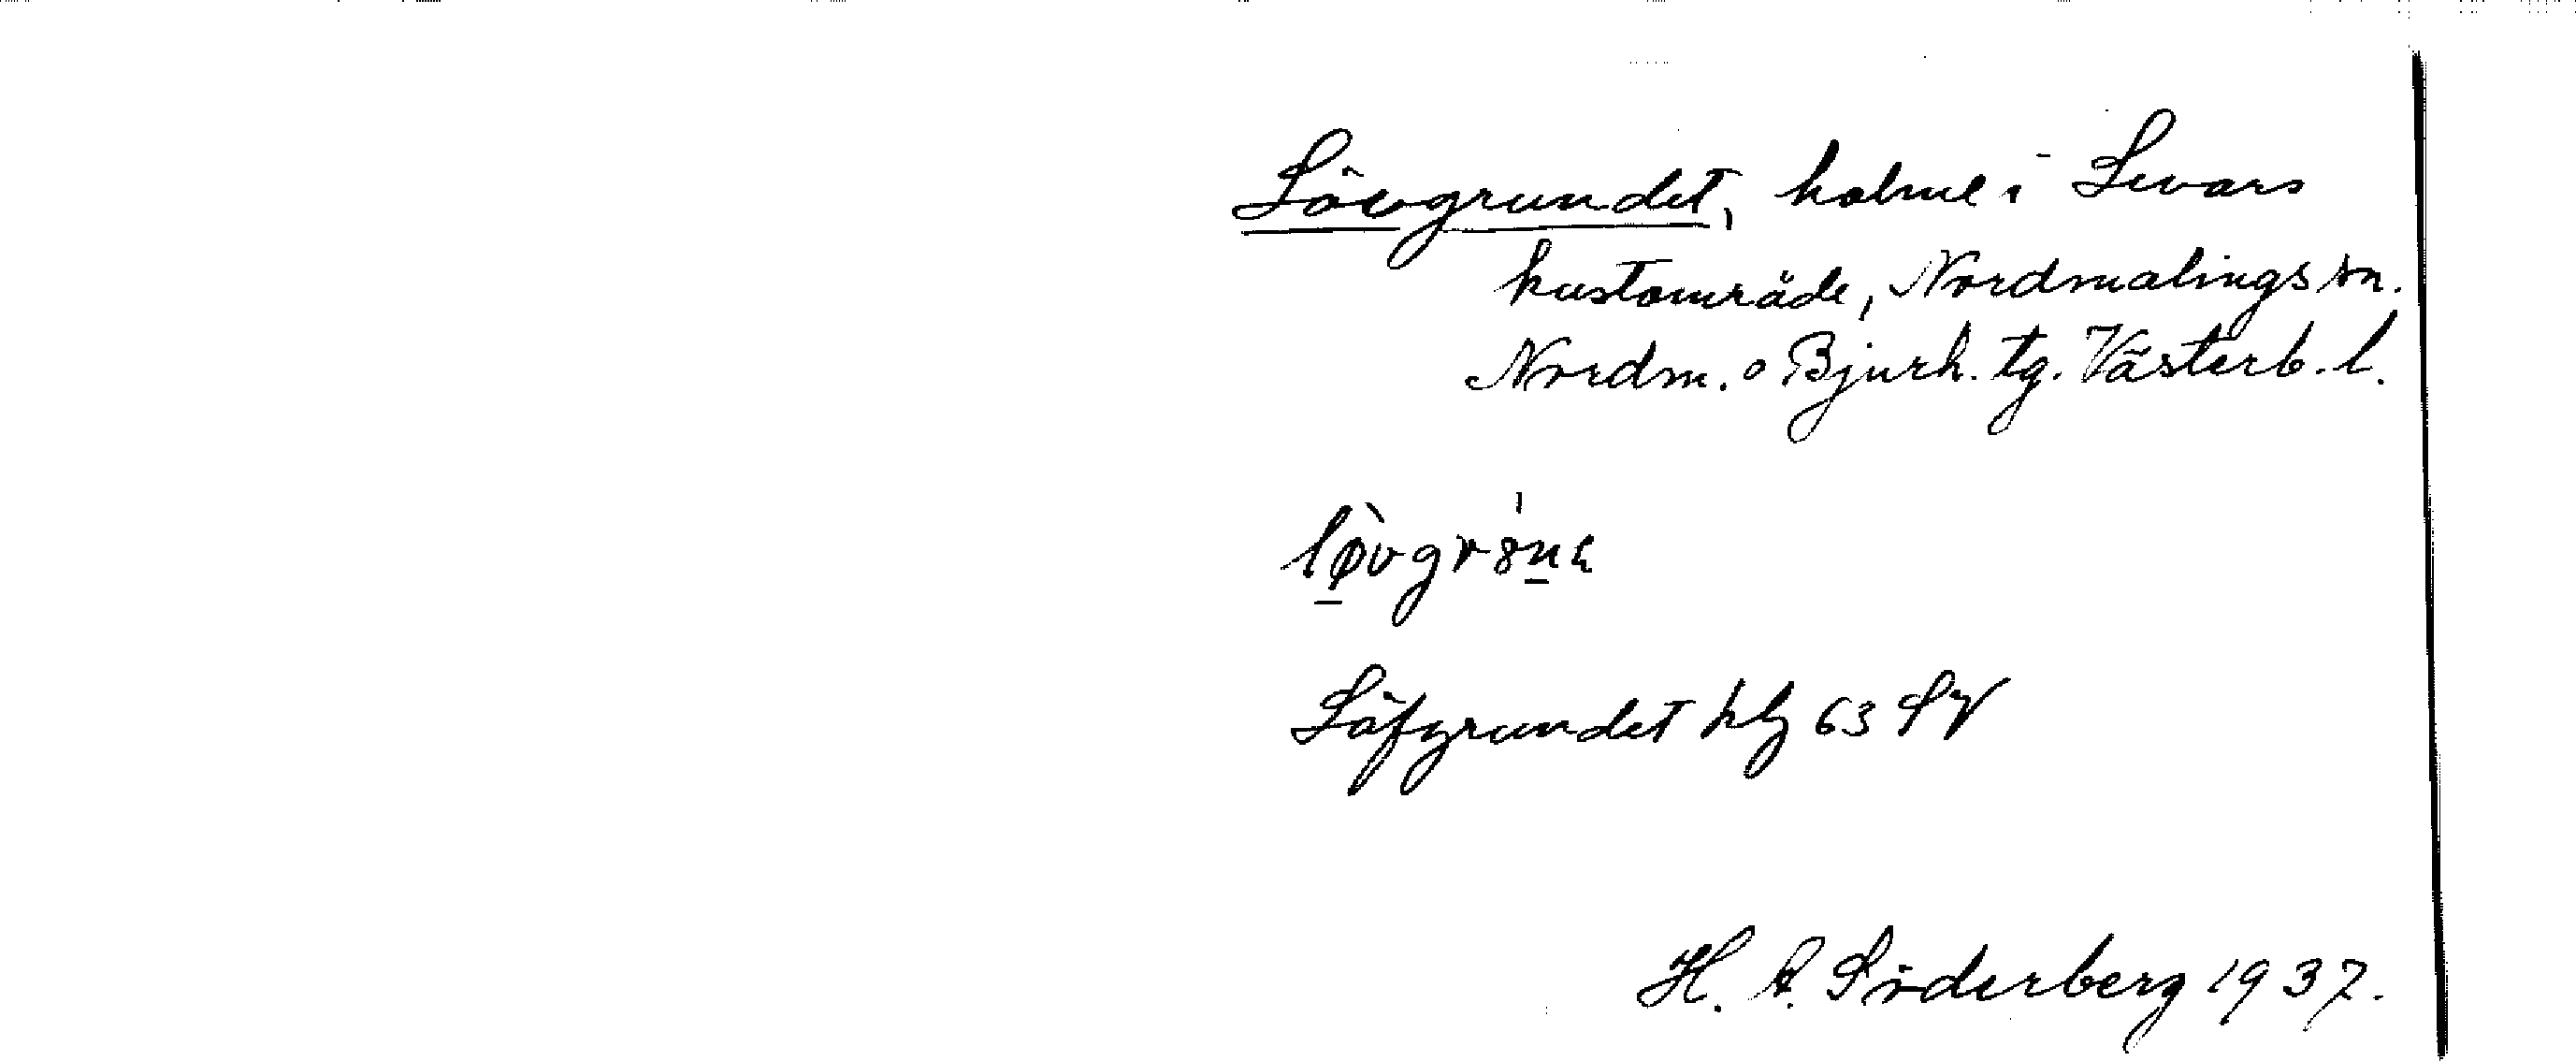 Lövgrundet, holme i Levars
kustområde, Nordmalings sn.
Nordm. o Bjurh. tg. Västerb. l.
Löfgrundet hlg 63 SV
H. A. Söderberg 1937.